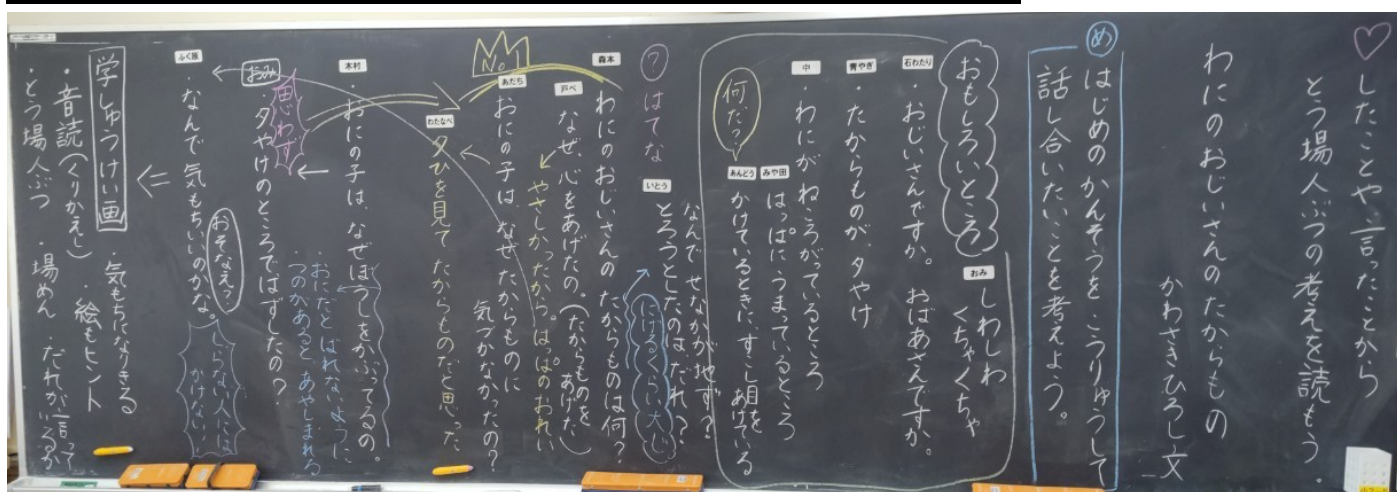 ♡したことや言ったことから
とう場人ぶつの考えを読もう。
わにのおじいさんのたからもの
かわさきひろし文
め
はじめのかんそうをこうりゅうして
話し合いたいことを考えよう。
おもしろいところ
おみ
しわしわ
くちゃくちゃ
石わたり
・おじいさんですか。おばあさんですか。
青やぎ
・たからものが、夕やけ
中
・わにがねころがっているところ
みや田
はっぱにうまっているところ
あんどう
かけているときに、すこし目を
あけている
何だ?
なんでせなかが地ず?
いとう
とろうとしたのは、だれ?
?はてな
にげるくらい大じ
森本
わにのおじいさんのたからものは何?
戸べ
なぜ、心をあげたの。(たからものを
あげた)
やさしかったから。はっぱのおれい
No.1
あだち
おにの子は、なぜたからものに
気づかなかったの?
わたなべ
夕ひを見てたからものだと思った
木村
・おにの子は、なぜぼうしをかぶってるの。
・おにだとばれないように
・つのがあると、あやしまれる
おみ
思わず
夕やけのところではずしたの?
ふく原
・なんで気もちいいのかな。
おそなえ?
しらない人には
かけない!
学しゅうけい画
・音読(くりかえし)
・とう場人ぶつ
・気もちになりきる
・絵もヒント
・場めん
・だれが言って
いるか